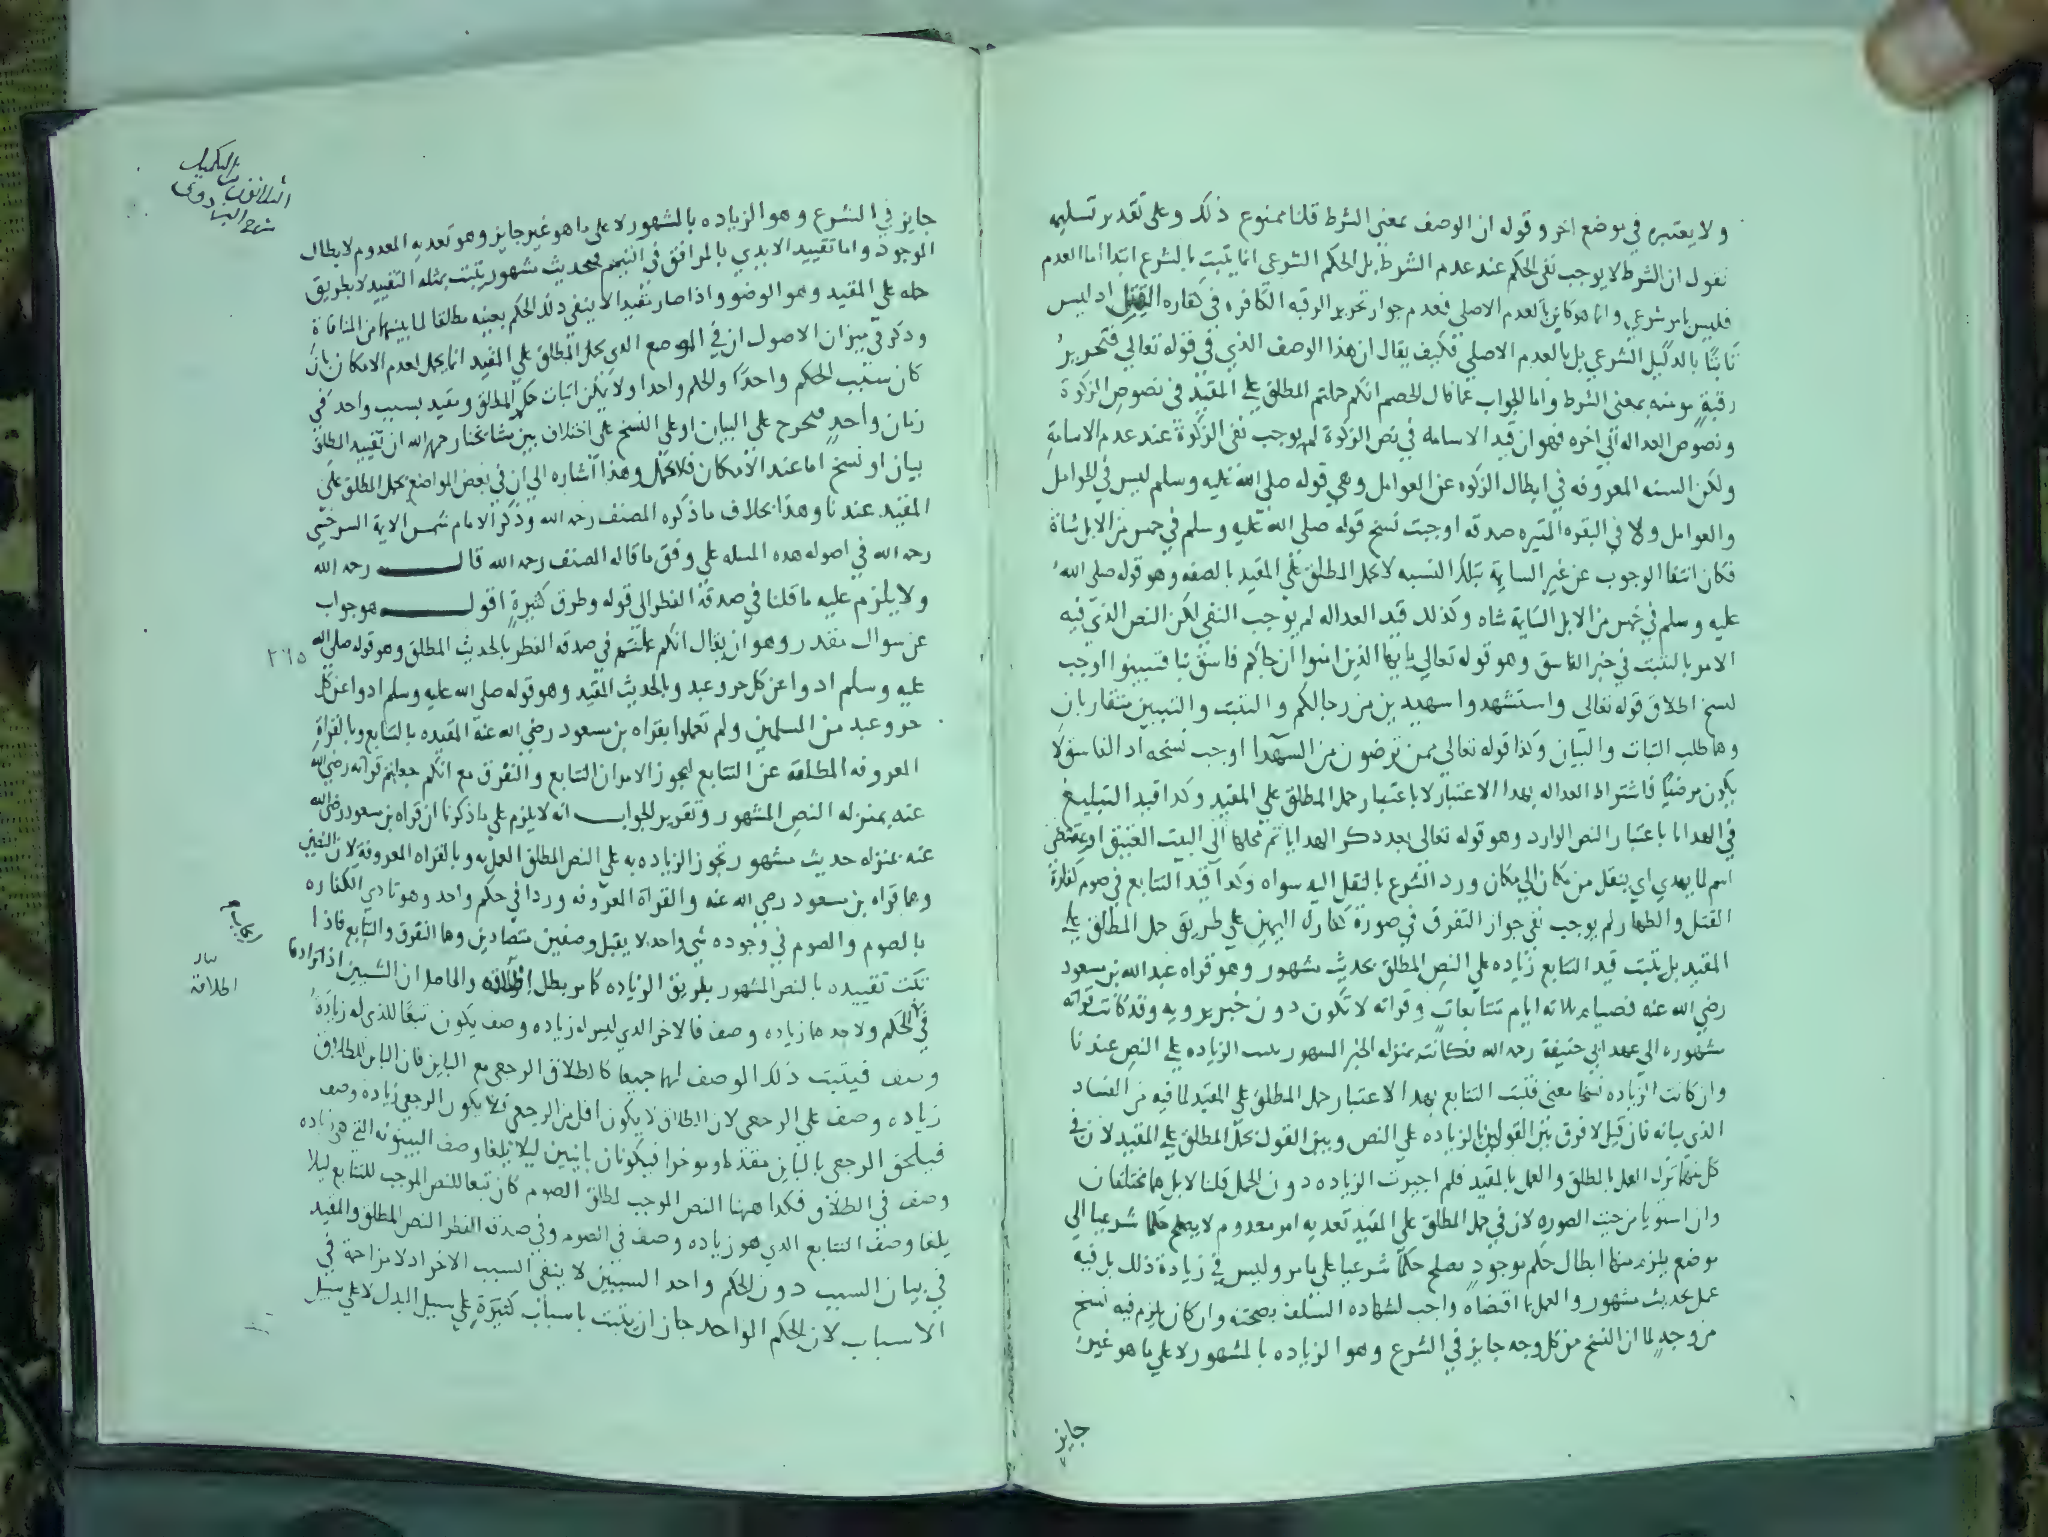 ولا يعتبره في موضع اخر وقوله ان الوصف بمعنى الشرط قلنا ممنوع ذلك وعلى تقدير تسليمه
نقول ان الشرط لا يوجب نفي الحكم عند عدم الشرط بل الحكم الشرعي انما يثبت بالشرع ابتدا اما العدم
فليس بامر شرعي وانما هو كاين بالعدم الاصلي فعدم جواز تحرير الرقبه الكافره في كفاره القتل اد ليس
ثابتًا بالدليل الشرعي بل بالعدم الاصلي فكيف يقال ان هذا الوصف الذي في قوله تعالى فتحرير
رقبةٍ مومنه بمعنى الشرط واما الجواب عما قال الخصم انكم حملتم المطلق على المقيد في نصوص الزكوة
ونصوص العداله الى اخره فهو ان قيد الاسامه في نص الزكوة لم يوجب نفي الزكوة عند عدم الاسامةِ
ولكن السنه المعروفه في ابطال الزكوه عن العوامل وهي قوله صلى الله عليه وسلم ليس في الحوامل
والعوامل ولا في البقره المثيره صدقه اوجبت نسخ قوله صلى الله عليه وسلم في خمس من الابل شاة
فكان انتفا الوجوب عن غير السايمة بتلك السنه لا بحمل المطلق على المقيد بالصفه وهو قوله صلى الله
عليه وسلم في خمس من الابل السايمة شاه وكذلك قيد العداله لم يوجب النفي لكن النص الذي فيه
الامر بالتثبت في خبر الفاسق وهو قوله تعالى يا ايها الذين امنوا ان جاكم فاسق بنبا فتبينوا اوجب
نسخ اطلاق قوله تعالى واستشهدوا شهيدين من رجالكم والتثبت والتبيين متقاربان
وهما طلب الثبات والبيان وكذا قوله تعالى ممن ترضون من الشهدا اوجب نسخه اد الفاسق لا
يكون مرضيًا فاشتراط العداله بهذا الاعتبار لا باعتبار حمل المطلق على المقيد وكذا قيد التبليغ
في الهدايا باعتبار النص الوارد وهو قوله تعالى بعد ذكر الهدايا ثم محلها الى البيت العتيق او بمقتضى
اسم لما يهدي اي ينقل من مكان الى مكان ورد الشرع بالنقل اليه سواه وكذا قيد التتابع في صوم كفارة
القتل والظهار لم يوجب نفي جواز التفرق في صورة كفارة اليمين على طريق حمل المطلق على
المقيد بل يثبت قيد التتابع زياده على النص المطلق بحديث مشهور وهو قراه عبد الله بن مسعود
رضي الله عنه فصيام ثلاثه ايام متتابعات وقراته لا تكون دون خبر يرويه وقد كانت قراته
مشهوره الى عهد ابي حنيفة رحمه الله فكانت بمنزله الخبر المشهور يثبت الزياده على النص عندنا
وان كانت الزياده نسخا معنى فثبت التتابع بهذا الاعتبار حمل المطلق على المقيد لما فيه من الفساد
الذي بيانه فان قيل لا فرق بين القول بالزياده على النص وبين القول بحمل المطلق على المقيد لان في
كل منهما ترك العمل بالمطلق والعمل بالمقيد فلم اجيزت الزياده دون الحمل قلنا لا بل هما مختلفان
وان استويا من حيث الصوره لان في حمل المطلق على المقيد تعديه امر معدوم لا يصلح حكما شرعيا الى
موضع يلزم منها ابطال حكم موجودٍ يصلح حكمًا شرعيا على ما مر وليس في زيادة ذلك بل فيه
عمل بحديث مشهور والعمل بما اقتضاه واجب لشهاده السلف بصحته وان كان يلزم فيه نسخ
من وجهٍ لما ان النسخ من كل وجه جايز في الشرع وهو الزياده بالمشهور لا على ما هو غير
جايز
التكميل
شرح البزدوى
جايز في الشرع وهو الزياده بالمشهور لا على ما هو غير جايز وهو تعديه المعدوم لابطال
الموجود واما تقييد الايدي بالمرافق في التيمم فبحديث مشهور يثبت بمثله التقييد لا بطريق
حمله على المقيد وهو الوضو واذا صار مقيدا لا يبقى ذلك الحكم بعينه مطلقا لما بينهما من المنافاة
وذكر في ميزان الاصول ان في الموضع الذي يحمل المطلق على المقيد انما يحمل لعدم الامكان بان
كان سبب الحكم واحدًا والحكم واحدا ولا يمكن اثبات حكم المطلق ومقيد بسبب واحد في
زمان واحدٍ فيخرج على البيان او على النسخ على اختلاف بين مشايخنا رحمهم الله ان تقييد المطلق
بيان او نسخ اما عند الامكان فلا يحمل وهذا اشاره الى ان في بعض المواضع يحمل المطلق على
المقيد عندنا وهذا بخلاف ما ذكره المصنف رحمه الله وذكر الامام شمس الايمة السرخسي
رحمه الله في اصوله هذه المسله على وفق ما قاله المصنف رحمه الله قال رحمه الله
ولا يلزم عليه ما قلنا في صدقة الفطر الى قوله وطرق كثيرةٍ اقول هو جواب
عن سوال مقدر وهو ان يقال انكم عملتم في صدقه الفطر بالحديث المطلق وهو قوله صلى الله
٢٦٥
عليه وسلم ادوا عن كل حر وعبد وبالحديث المقيد وهو قوله صلى الله عليه وسلم ادوا عن كل
حر وعبد من المسلمين ولم تعملوا بقراه بن مسعود رضي الله عنه المقيده بالتتابع وبالقراة
المعروفه المطلقه عن التتابع ليجوز الامران التتابع والتفرق مع انكم جعلتم قراته رضي الله
عنه بمنزله النص المشهور وتقرير الجواب انه لا يلزم على ما ذكرنا ان قراه بن مسعود رضي الله
عنه بمنزله حديث مشهور تجوز الزياده به على النص المطلق العمل به وبالقراه المعروفة لان النصين
وهما قراه بن مسعود رضي الله عنه والقراة المعروفه وردا في حكم واحد وهو تادي الكفاره
بالصوم والصوم في وجوده شي واحد لا يقبل وصفين متضادين وهما التفرق والتتابع فاذا
ثبت تقييده بالنص المشهور بطريق الزياده كما مر بطل اطلاقه والحاصل ان الشيين اذا ترادفا
اطلاقه
في الحكم ولاحدهما زياده وصف فالاخر الذي ليس له زياده وصف يكون تبعًا للذي له زيادة
وصف فيثبت ذلك الوصف لهما جميعا كالطلاق الرجعي مع الباين فان الباين للطلاق
زياده وصف على الرجعي لان الطلاق لا يكون اقل من الرجعي فلا يكون الرجعي زياده وصف
فيلحق الرجعي بالباين مقدما وموخرا فيكونان باينين ليلا يلغا وصف البينونه التي هي زياده
وصف في الطلاق فكذا ههنا النص الموجب لمطلق الصوم كان تبعا للنص الموجب للتتابع ليلا
يلغا وصف التتابع الذي هو زياده وصف في الصوم وفي صدقه الفطر النص المطلق والمقيد
في بيان السبب دون الحكم واحد السببين لا ينفي السبب الاخر اد لا مزاحمة في
الاسباب لان الحكم الواحد جاز ان يثبت باسباب كثيرةٍ على سبيل البدل لا على سبيل